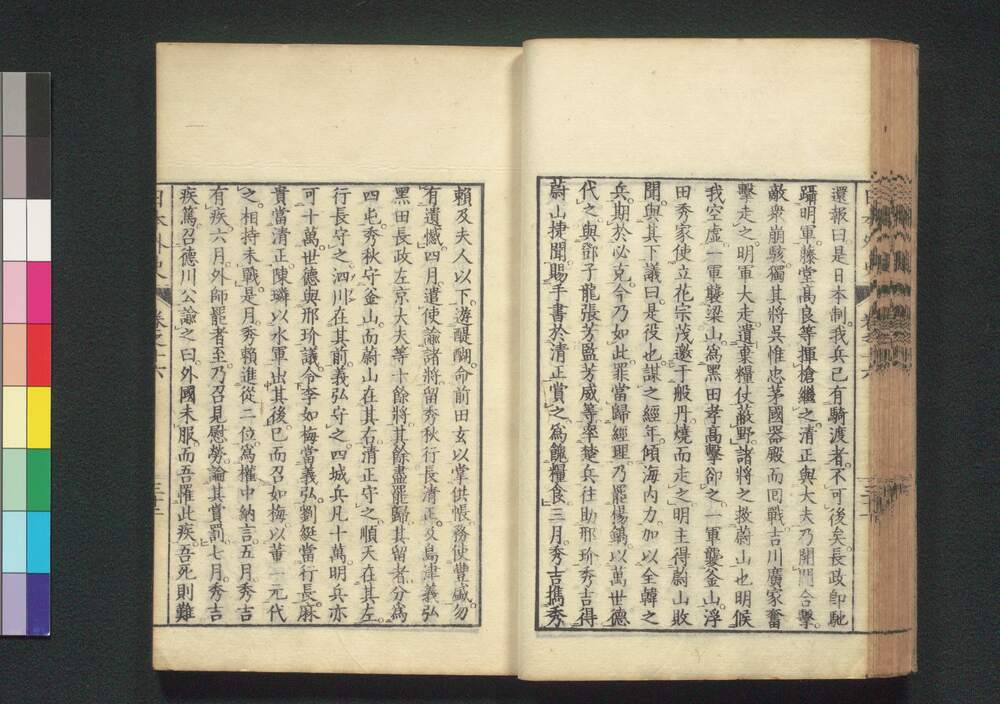 還報曰是日本制我兵已有騎渡者不可後矣長政卽馳
躡明軍藤堂高良等揮槍繼之清正與大夫乃開門合擊
敵衆崩駭獨其將吳惟忠茅國器殿而回戰吉川廣家奮
擊走之明軍大走遺棄糧仗蔽野諸將之救蔚山也明候
我空虛一軍襲梁山爲黑田孝高擊卻之一軍襲釜山浮
田秀家使立花宗茂邀于般丹燒而走之明主得蔚山敗
聞與其下議曰是役也謀之經年傾海內力加以全韓之
兵期於必克今乃如此罪當歸經理乃罷楊鎬以萬世德
代之與鄧子龍張芳監芳威等率楚兵往助邢玠秀吉得
蔚山捷聞賜手書於清正賞之爲餽糧食三月秀吉擕秀
賴及夫人以下遊醍醐命前田玄以掌供帳務使豐盛勿
有遺憾四月遣使諭諸將留秀秋行長清正及島津義弘
黑田長政左京大夫等十餘將其餘盡罷歸其留者分爲
四屯秀秋守釜山而蔚山在其右清正守之順天在其左
行長守之泗川在其前義弘守之四城兵凡十萬明兵亦
可十萬世德與邢玠議令李如梅當義弘劉綎當行長麻
貴當清正陳璘以水軍出其後已而召如梅以董一元代
之相持未戰是月秀賴進從二位爲權中納言五月秀吉
有疾六月外師罷者至乃召見慰勞論其賞罰七月秀吉
疾篤召德川公諭之曰外國未服而吾罹此疾吾死則難
日本外史 卷之十六